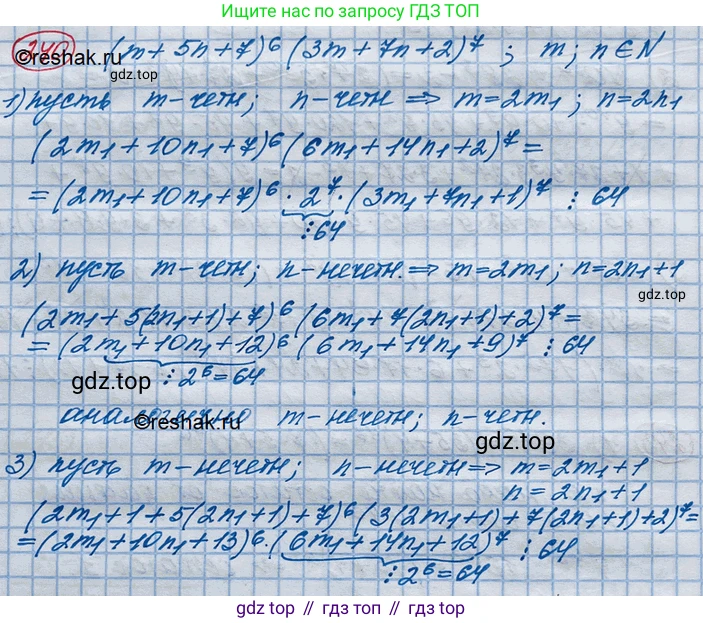 Ищите ответы по запросу ГДЗ ТОП
240 (m + 5n + 7)⁶ (3m + 7n + 2)⁷ ; m; n ∈ N
©reshak.ru
gdz.top
1) пусть m - четн; n - четн ⇒ m = 2m₁ ; n = 2n₁
(2m₁ + 10n₁ + 7)⁶ (6m₁ + 14n₁ + 2)⁷ =
= (2m₁ + 10n₁ + 7)⁶ · 2⁷ · (3m₁ + 7n₁ + 1)⁷ ⋮ 64
⋮ 64
2) пусть m - четн; n - нечетн. ⇒ m = 2m₁ ; n = 2n₁ + 1
gdz.top
(2m₁ + 5(2n₁ + 1) + 7)⁶ (6m₁ + 7(2n₁ + 1) + 2)⁷ =
= (2m₁ + 10n₁ + 12)⁶ (6m₁ + 14n₁ + 9)⁷ ⋮ 64
gdz.top ⋮ 2⁶ = 64
аналогично m - нечетн; n - четн.
©reshak.ru
gdz.top
3) пусть m - нечетн; n - нечетн ⇒ m = 2m₁ + 1
n = 2n₁ + 1
(2m₁ + 1 + 5(2n₁ + 1) + 7)⁶ (3(2m₁ + 1) + 7(2n₁ + 1) + 2)⁷ =
= (2m₁ + 10n₁ + 13)⁶ · (6m₁ + 14n₁ + 12)⁷ ⋮ 64
⋮ 2⁶ = 64
gdz.top // гдз.топ // gdz.top